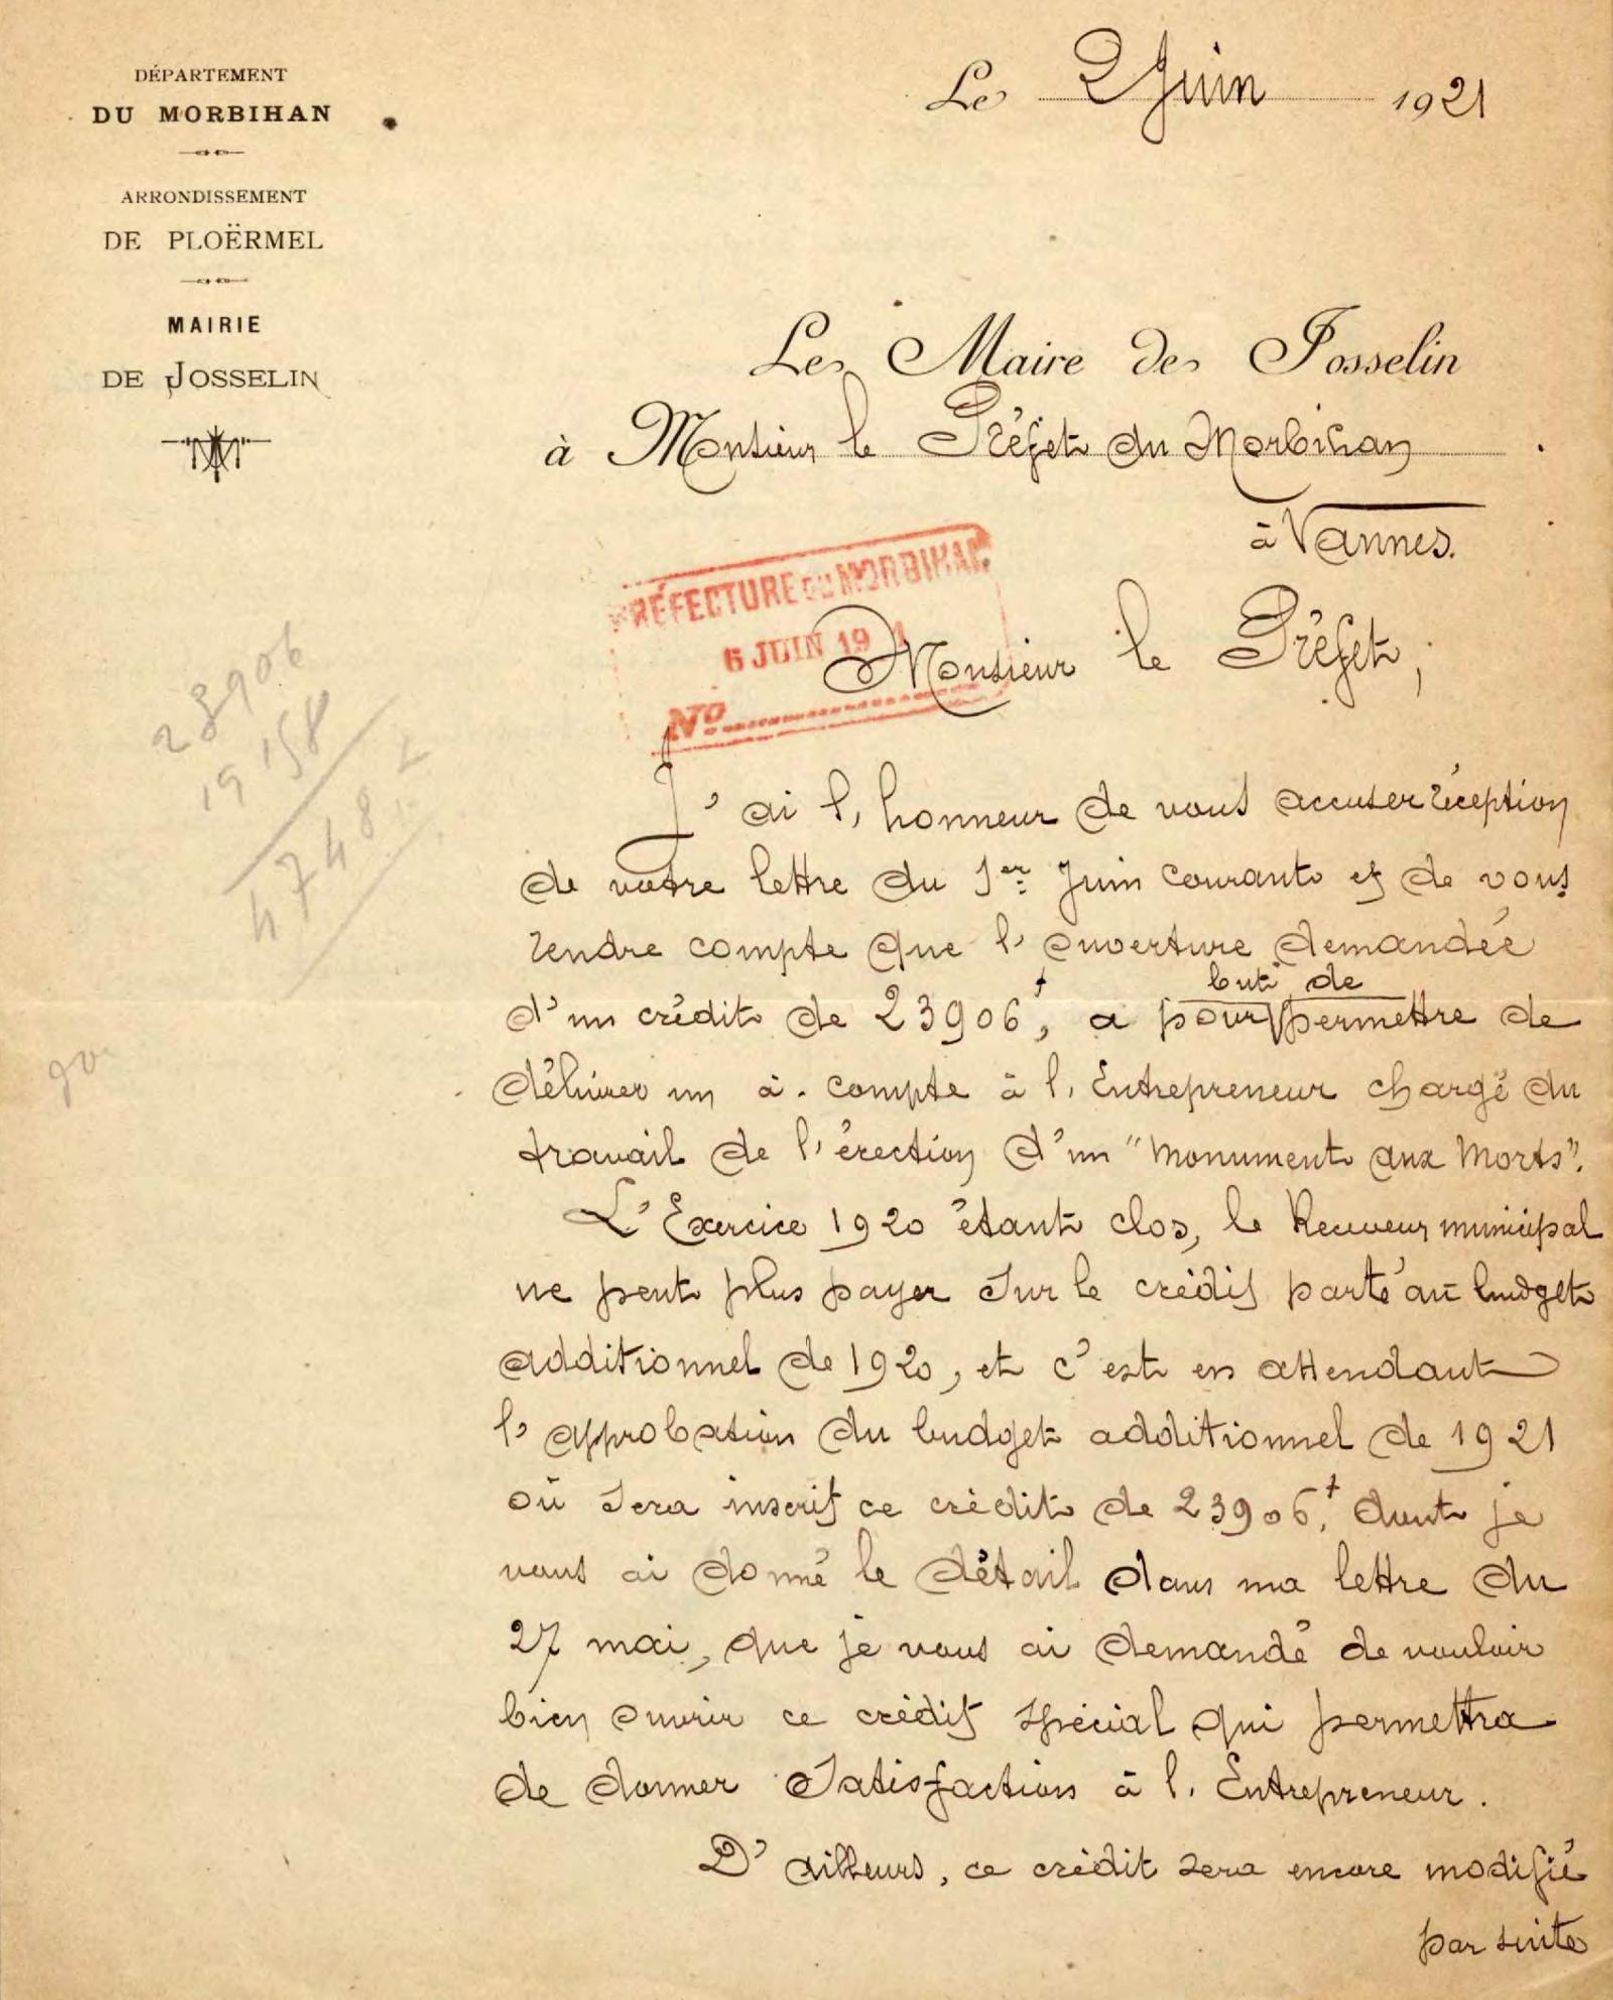 DÉPARTEMENT
DU MORBIHAN
ARRONDISSEMENT
DE PLOËRMEL
MAIRIE
DE JOSSELIN
Le 2 Juin 1921
Le Maire de Josselin
à Monsieur le Préfet du Morbihan
à Vannes.
PRÉFECTURE DU MORBIHAN
6 JUIN 19 1
No
Monsieur le Préfet,
J'ai l'honneur de vous accuser réception
de votre lettre du 1er Juin courant et de vous
rendre compte que l'ouverture demandée
but de
d'un crédit de 23906f, a pour permettre de
délivrer un à-compte à l'Entrepreneur chargé du
travail de l'érection d'un "Monument aux Morts".
L'Exercice 1920 étant clos, le Receveur municipal
ne peut plus payer sur le crédit porté au budget
additionnel de 1920, et c'est en attendant
l'approbation du budget additionnel de 1921
où sera inscrit ce crédit de 23906f. dont je
vous ai donné le détail dans ma lettre du
27 mai, que je vous ai demandé de vouloir
bien ouvrir ce crédit spécial qui permettra
de donner satisfaction à l'Entrepreneur.
D'ailleurs, ce crédit sera encore modifié
par suite
23906